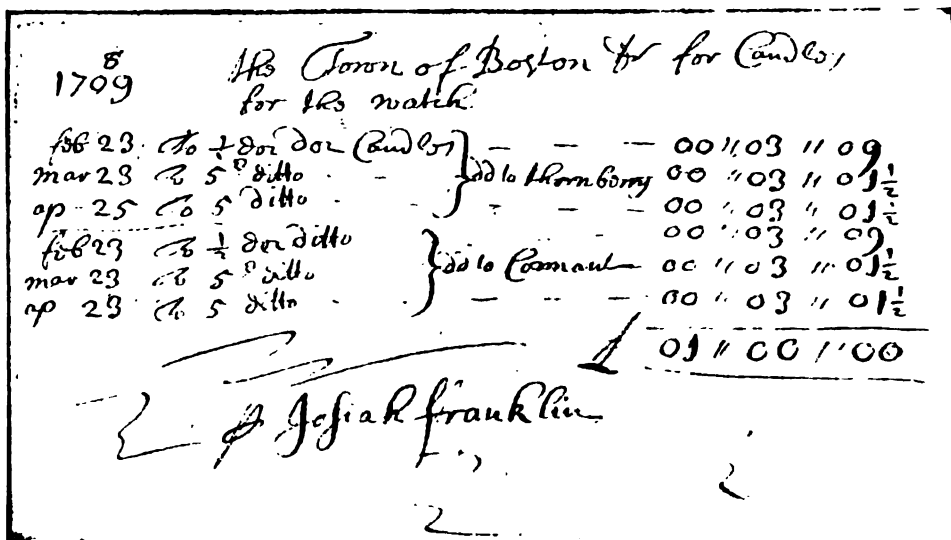 1709 8 the Town of Boston Dr for Candles,
for the watch
feb 23 To ½ doz Candles - - - 00 " 03 " 09
mar 23 To 5 lb ditto - - dd to thornberry 00 " 03 " 01½
ap 25 To 5 ditto - - - 00 " 03 " 01½
feb 23 To ½ doz ditto 00 " 03 " 09
mar 23 To 5 lb ditto dd to 00 " 03 " 01½
ap 23 To 5 ditto - - - 00 " 03 " 01½
01 " 00 " 00
Josiah franklin